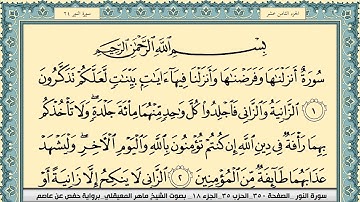 الجزء الثامن عشر سورة النور ٢٤
بِسْمِ اللَّهِ الرَّحْمَٰنِ الرَّحِيمِ
سُورَةٌ أَنزَلْنَٰهَا وَفَرَضْنَٰهَا وَأَنزَلْنَا فِيهَآ ءَايَٰتٍۭ بَيِّنَٰتٍ لَّعَلَّكُمْ تَذَكَّرُونَ
١ ٱلزَّانِيَةُ وَٱلزَّانِى فَٱجْلِدُوا۟ كُلَّ وَٰحِدٍ مِّنْهُمَا مِا۟ئَةَ جَلْدَةٍ وَلَا تَأْخُذْكُم
بِهِمَا رَأْفَةٌ فِى دِينِ ٱللَّهِ إِن كُنتُمْ تُؤْمِنُونَ بِٱللَّهِ وَٱلْيَوْمِ ٱلْءَاخِرِ وَلْيَشْهَدْ
عَذَابَهُمَا طَآئِفَةٌ مِّنَ ٱلْمُؤْمِنِينَ ٢ ٱلزَّانِى لَا يَنكِحُ إِلَّا زَانِيَةً أَوْ
سورة النور الصفحة ٣٥٠ الحزب ٣٥ الجزء ١٨ بصوت الشيخ ماهر المعيقلي برواية حفص عن عاصم